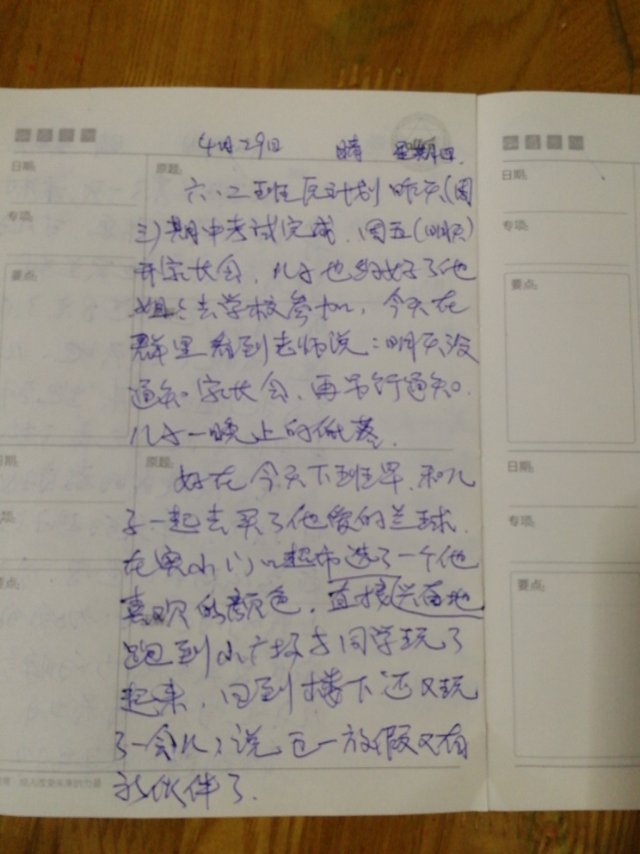 4月29日 晴 星期四.
日期:
原题:
日期:
六.二班 反计划 昨天(周
专项:
专项:
三)期中考试完成.周五(明天)
要点:
要点:
开家长会.儿子也约好了他
姐姐去学校参加,今天在
群里看到老师说:明天没
通知家长会,再另行通知.
儿子一晚上的低落.
日期:
原题:
日期:
好在今天下班早.和儿
子一起去买了他爱的兰球.
专项:
在 超市选了一个他
要点:
要点:
喜欢的颜色,直接兴奋地
跑到小广场与同学玩了
起来,回到楼下还又玩
了一会儿,说五一放假又有
新伙伴了.